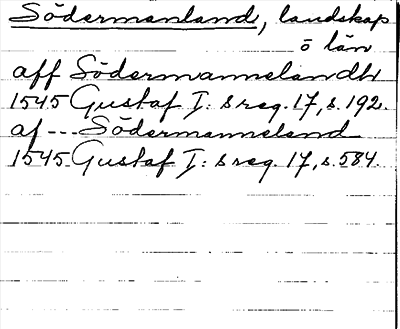 Södermanland, landskap
o län
aff Södermannelandh
1545 Gustaf I: s reg. 17, s. 192.
af --- Södermanneland
1545 Gustaf I: s reg. 17, s. 584.